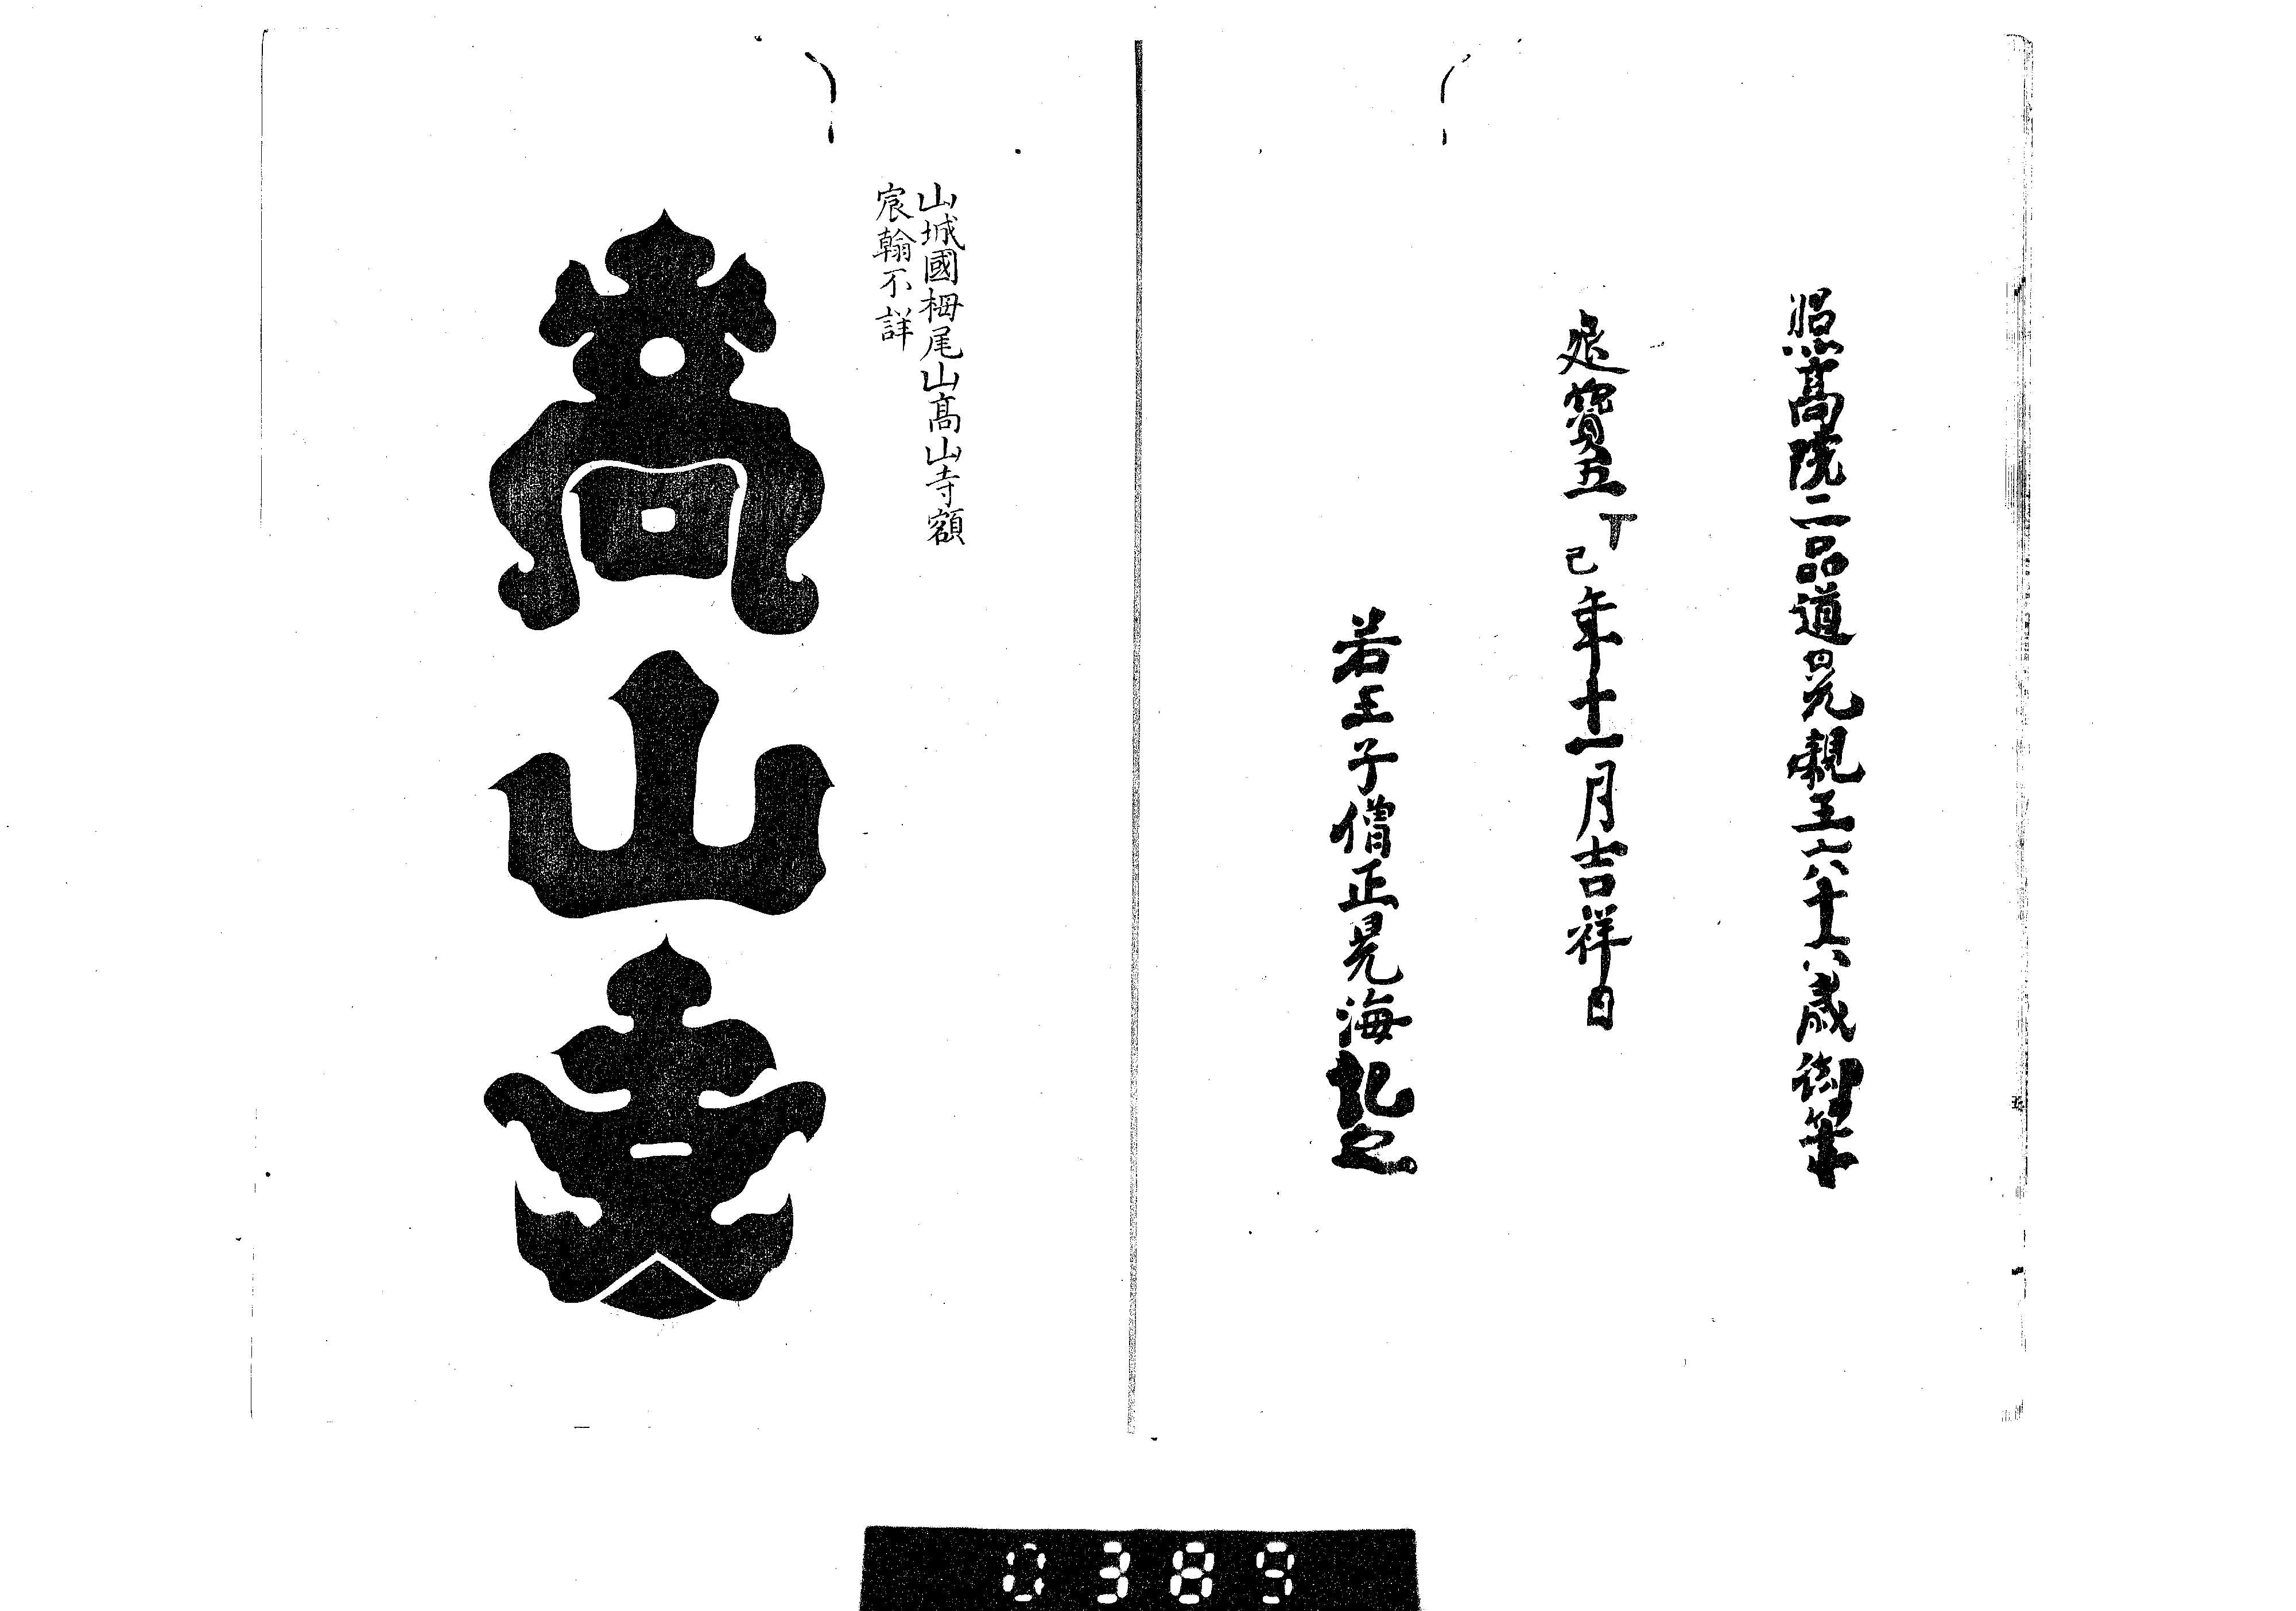 照髙院二品道晃親王六十六歳御筆
延寶五丁巳年十一月吉祥日
若王子僧正晃海記之
山城國栂尾山髙山寺額
宸翰不詳
高山寺
0389